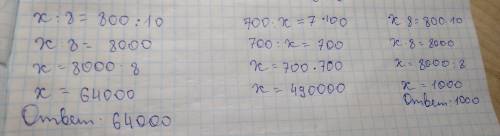 x : 8 = 800 : 10
x : 8 = 8000
x = 8000 : 8
x = 64000
Ответ: 64000
700 · x = 7 · 100
700 : x = 700
x = 700 · 700
x = 490000
x 8 = 800 · 10
x 8 = 8000
x = 8000 : 8
x = 1000
Ответ: 1000